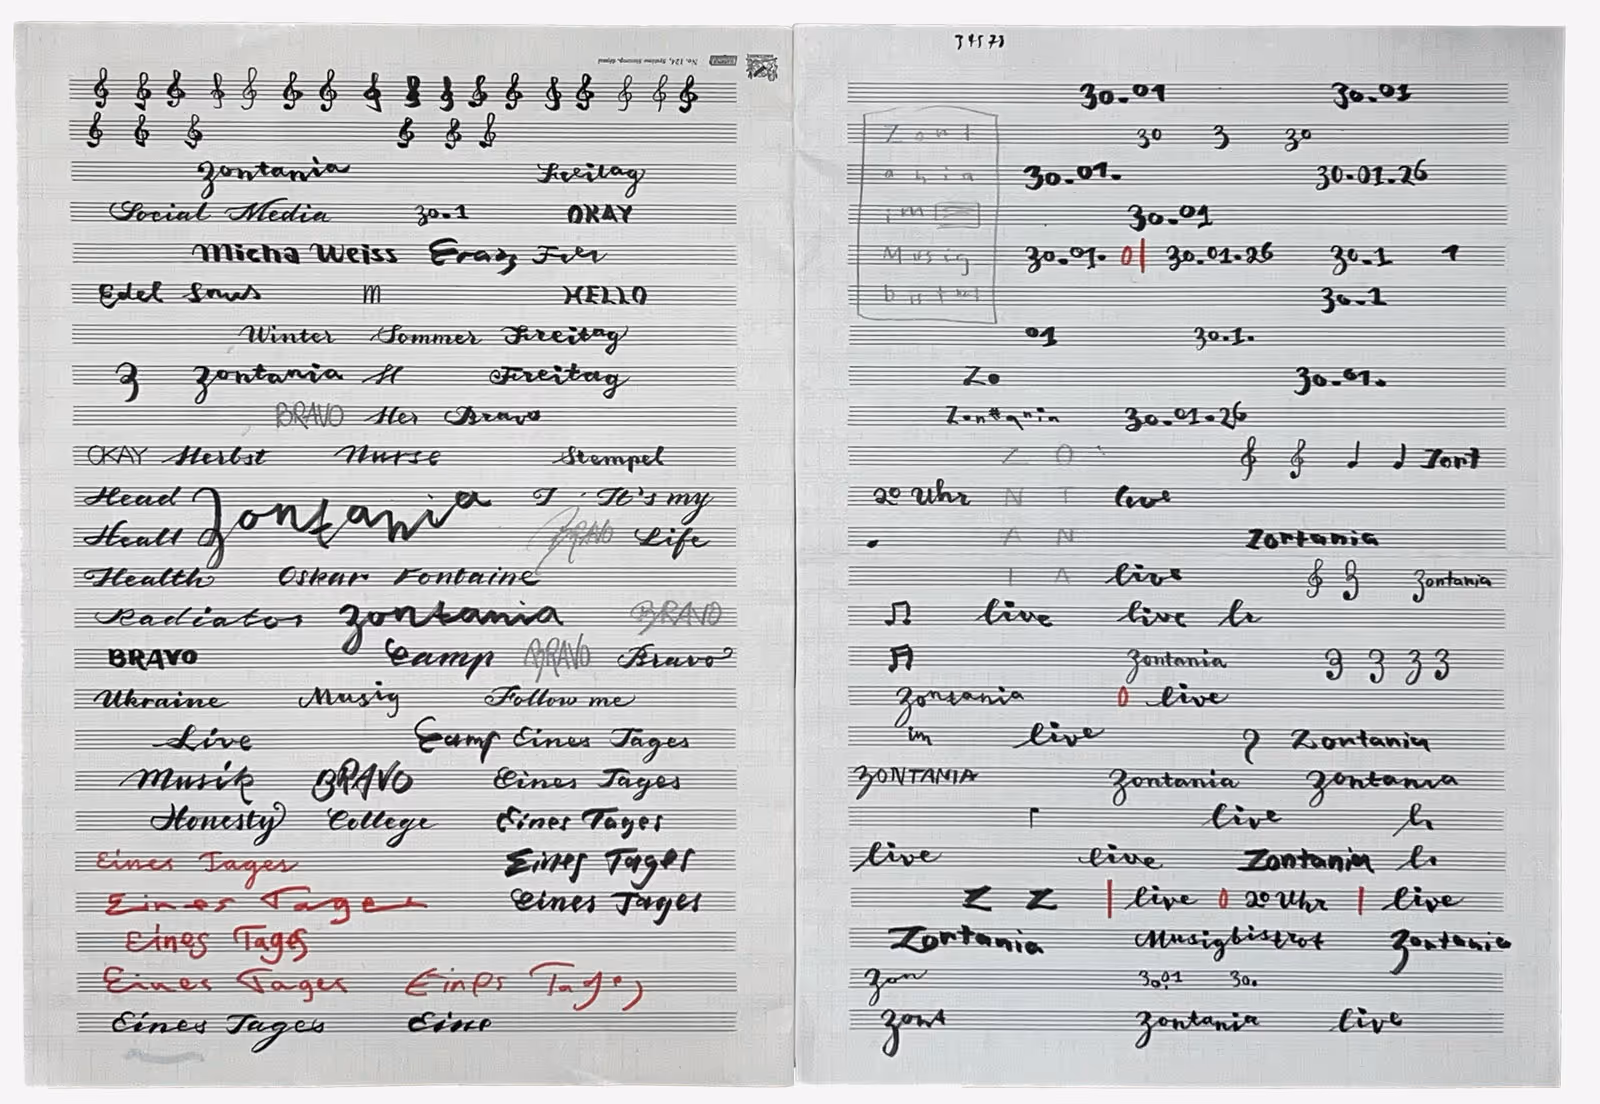 No. 124,
Zontania Freitag
Social Media 30.1 OKAY
Micha Weiss
Edel m HELLO
Winter Sommer Freitag
3 Zontania H Freitag
BRAVO Her Bravo
OKAY Herbst Nurse Stempel
Head Zontania I It's my
Healt BRAVO Life
Health Oskar Fontaine
Radiator Zontania BRAVO
BRAVO Camp BRAVO Bravo
Ukraine Musig Follow me
Live Camp Eines Tages
Musik BRAVO Eines Tages
Honesty College Eines Tages
Eines Tages Eines Tages
Eines Tages Eines Tages
Eines Tages
Eines Tages Eines Tages
Eines Tages Eine
34573
30.01 30.01
Zont 30 3 30
ania 30.01. 30.01.26
im 30.01
Musig 30.01. 0| 30.01.26 30.1 1
bistrot 30.1
01 30.1.
Zo 30.01.
Zontania 30.01.26
ZO Zont
20 Uhr NT live
AN Zontania
IA live Zontania
live live li
Zontania 3 3 3 3
Zontania 0 live
im live Zontania
ZONTANIA Zontania Zontania
live li
live live Zontania li
Z Z | live 0 20 Uhr | live
Zontania Musigbistrot Zontania
Zon 30.01 30.
Zont Zontania live